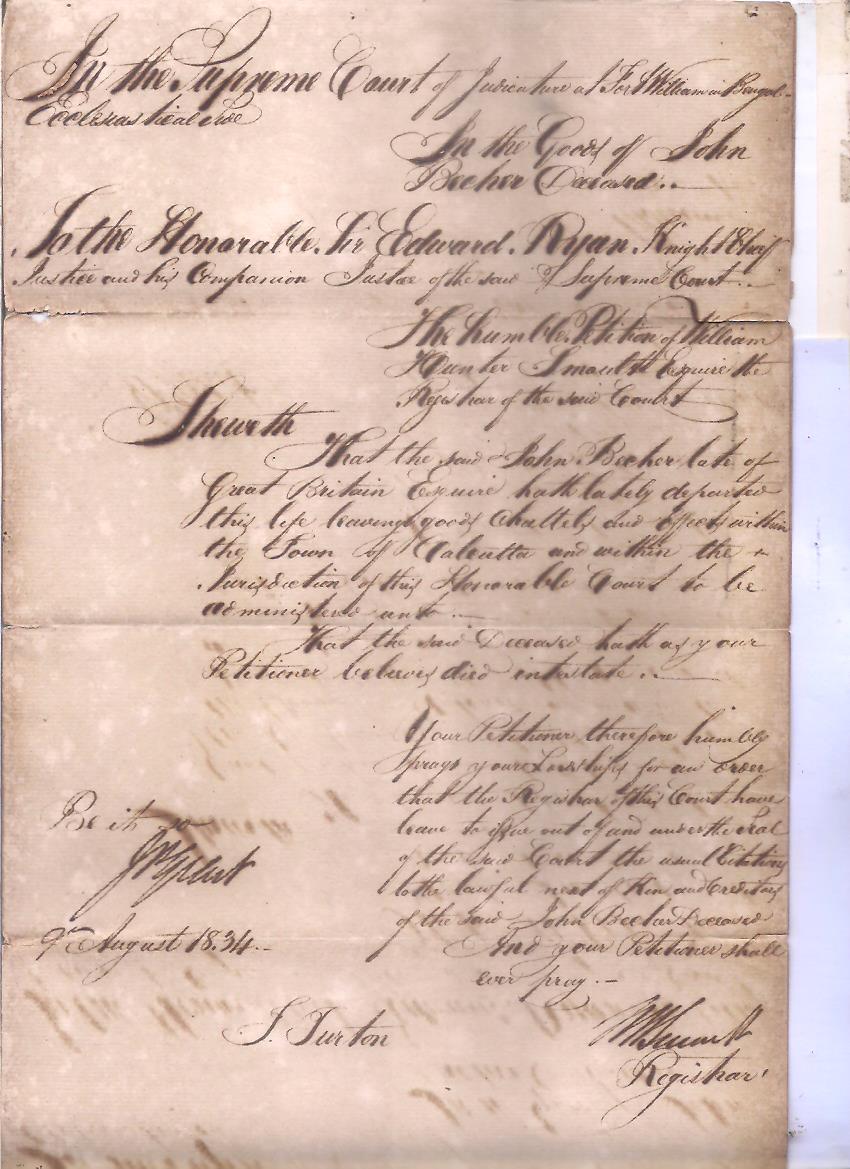 In the Supreme Court of Judicature at Fort William in Bengal
Ecclesiastical Side
In the Goods of John
Becher Deceased..
To the Honorable. Sir Edward. Ryan. Knight Chief
Justice and his Companion Justice of the said Supreme Court..
The humble Petition of William
Hunter Smoult Esquire the
Registrar of the said Court
Sheweth
That the said John Becher late of
Great Britain Esquire hath lately departed
this life leaving goods Chattels and Effects within
the Town of Calcutta and within the
Jurisdiction of this Honorable Court to be
administered unto..
That the said Deceased hath as your
Petitioner believes died intestate..
Your Petitioner therefore humbly
prays your Lordships for an Order
that the Registrar of this Court have
leave to issue out of and under the Seal
of the said Court the usual Citations
to the lawful next of Kin and Creditors
of the said John Becher Deceased
And your Petitioner shall
ever pray.-
Be it so
9th August 1834.-
T. Turton
WHSmoult
Registrar